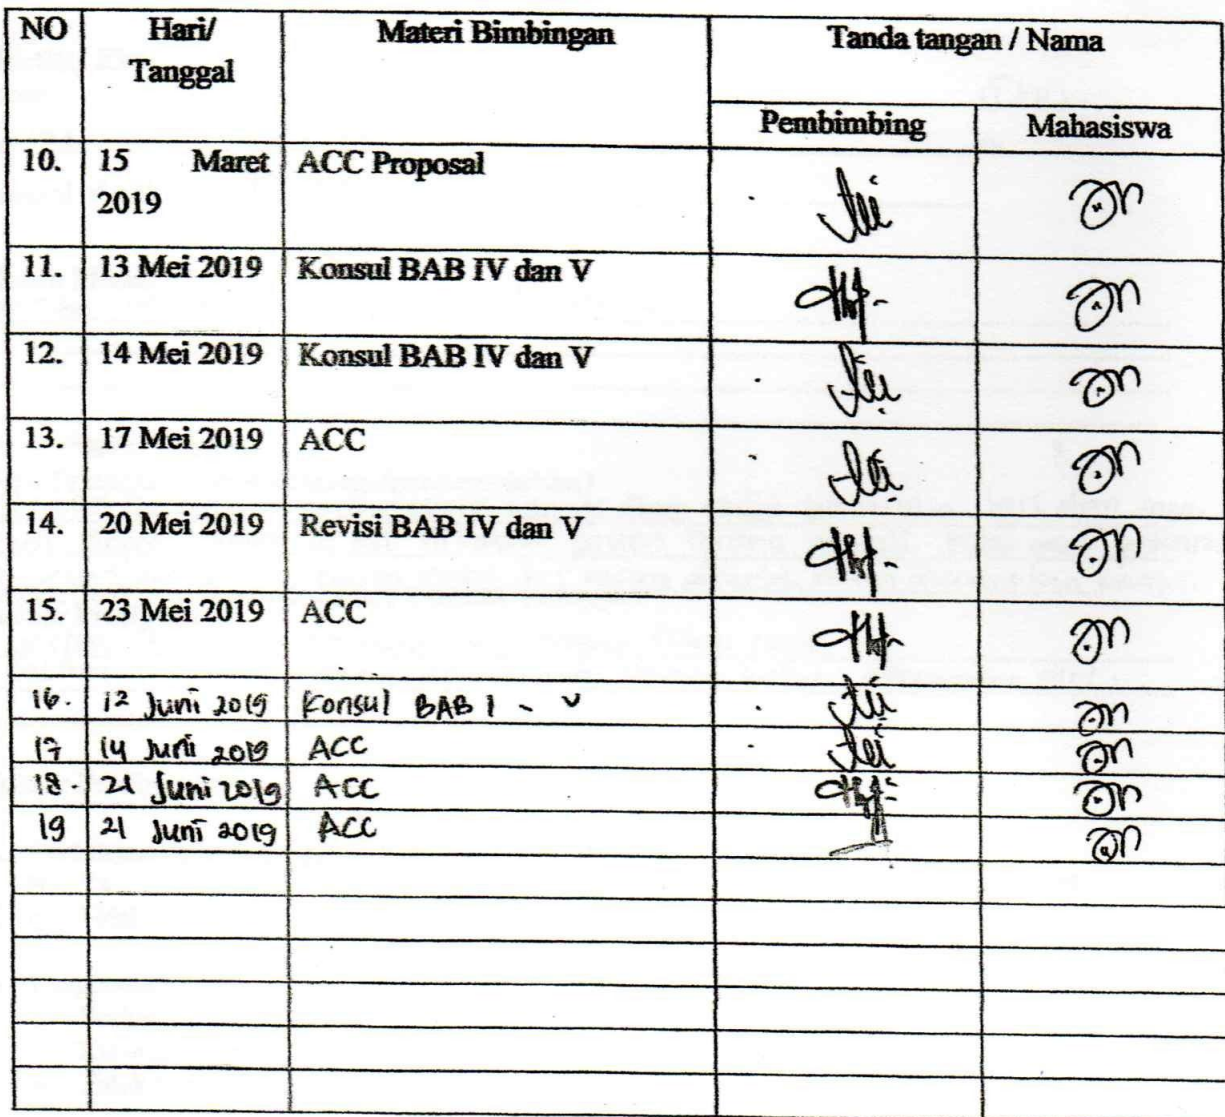 NO Hari/ Materi Bimbingan Tanda tangan / Nama
Tanggal
Pembimbing Mahasiswa
10. 15 Maret ACC Proposal
2019
11. 13 Mei 2019 Konsul BAB IV dan V
12. 14 Mei 2019 Konsul BAB IV dan V
13. 17 Mei 2019 ACC
14. 20 Mei 2019 Revisi BAB IV dan V
15. 23 Mei 2019 ACC
16. 12 Juni 2019 Konsul BAB I - V
17 14 Juni 2019 ACC
18. 21 Juni 2019 ACC
19 21 Juni 2019 ACC